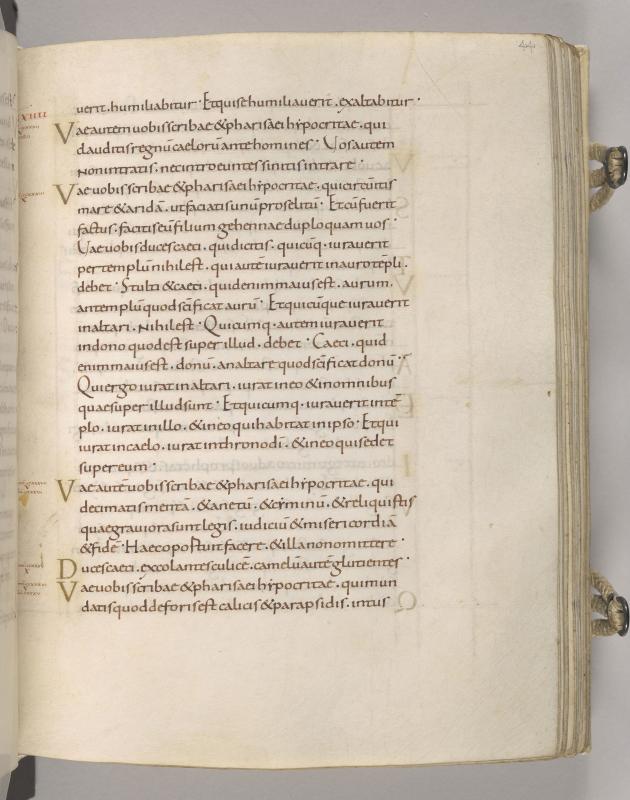 44
uerit. humiliabitur · Et qui se humiliauerit. exaltabitur ·
XXIIII
Vae autem uobis scribae & pharisaei hypocritae. qui
clauditis regnū caelorū ante homines · Uos autem
non intratis. nec introeuntes sinitis intrare ·
Vae uobis scribae & pharisaei hypocritae. qui circuitis
mare & aridā. ut faciatis unū proselitū · Et cū fuerit
factus. facitis eū filium gehennae duplo quam uos ·
Uae uobis duces caeci. qui dicitis. quicūq. iurauerit
per templū nihil est. qui autē iurauerit in auro tēpli.
debet · Stulti & caeci. quid enim maius est. aurum.
an templū quod scīficat aurū · Et quicūque iurauerit
in altari. nihil est · Quicumq. autem iurauerit
in dono quod est super illud. debet · Caeci. quid
enim maius est. donū. an altare quod scīficat donū ·
Qui ergo iurat in altari. iurat in eo & in omnibus
quae super illud sunt · Et quicumq. iurauerit in tē
plo. iurat in illo. & in eo qui habitat in ipso · Et qui
iurat in caelo. iurat in throno dī. & in eo qui sedet
super eum ·
Vae autē uobis scribae & pharisaei hypocritae. qui
decimatis mentā. & anetū. & cyminū. & reliquistis
quae grauiora sunt legis. iudiciū & misericordiā
& fidē · Haec oportuit facere. & illa non omittere ·
Duces caeci. excolantes culicē. camelū autē glutientes ·
Vae uobis scribae & pharisaei hypocritae. qui mun
datis quod de foris est calicis & parapsidis. intus